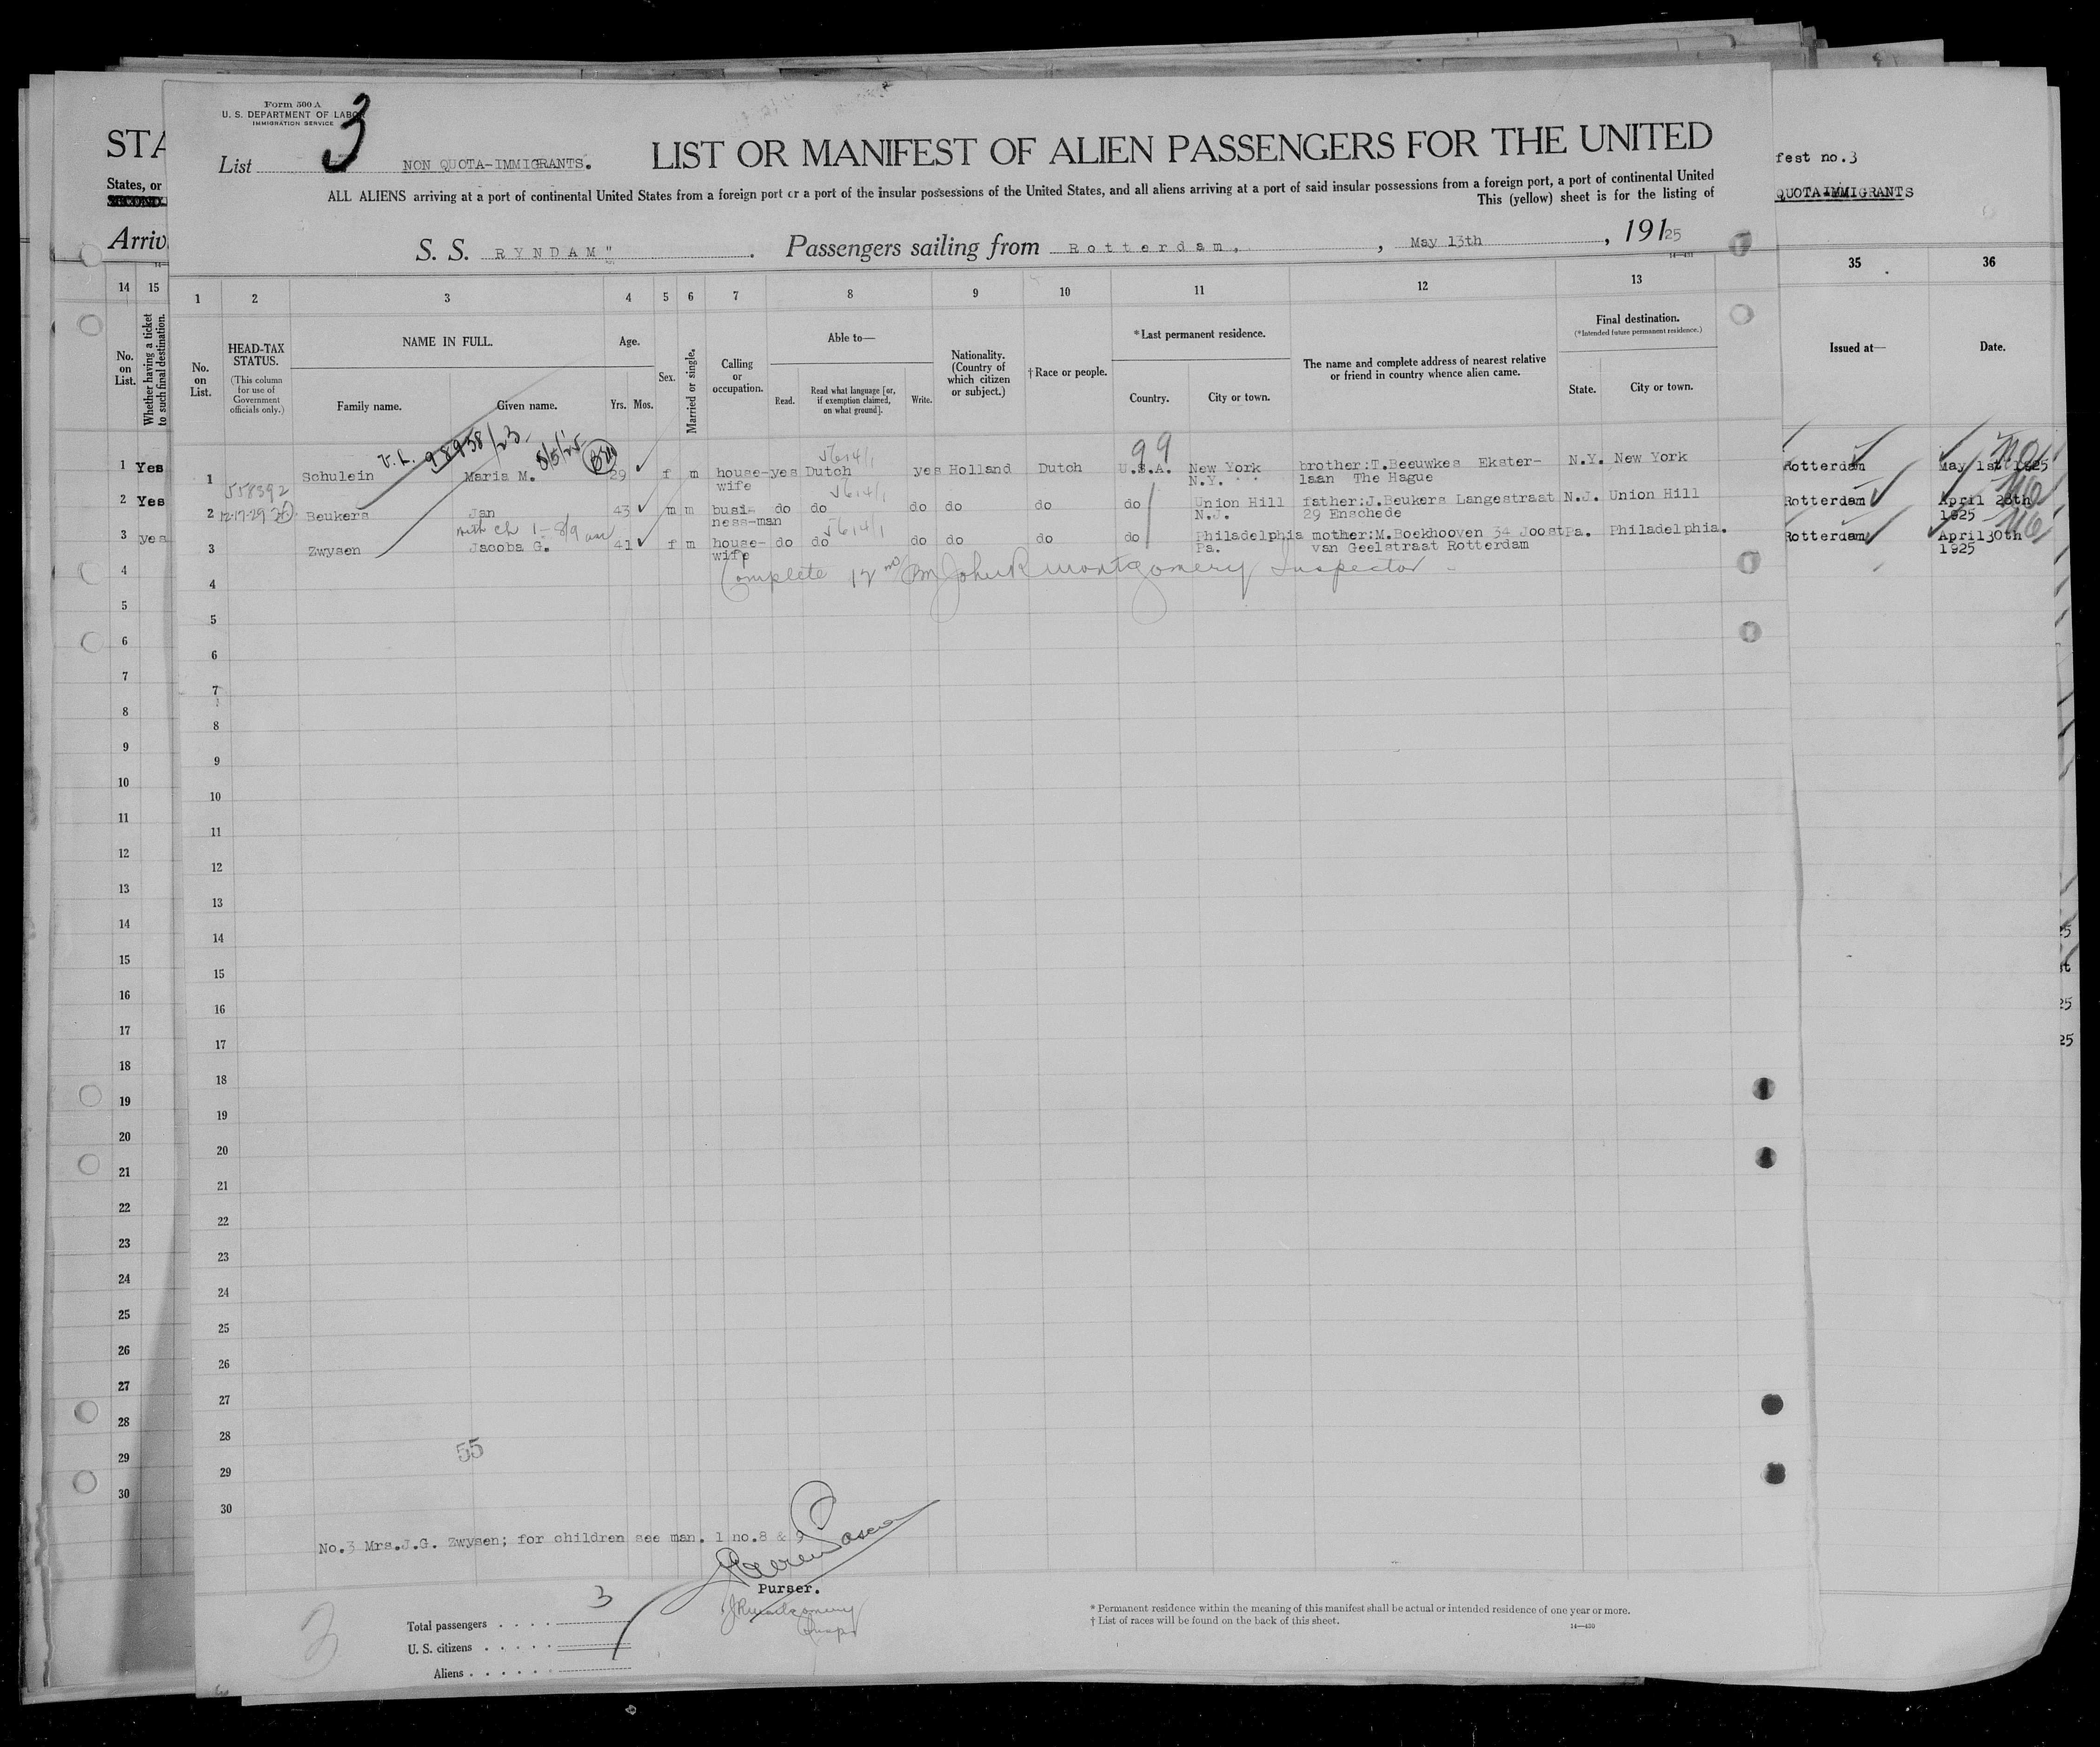 Form 500 A
U. S. DEPARTMENT OF LABOR
IMMIGRATION SERVICE
3
List NON QUOTA-IMMIGRANTS.
LIST OR MANIFEST OF ALIEN PASSENGERS FOR THE UNITED
ALL ALIENS arriving at a port of continental United States from a foreign port or a port of the insular possessions of the United States, and all aliens arriving at a port of said insular possessions from a foreign port, a port of continental United
This (yellow) sheet is for the listing of
S. S. RYNDAM" Passengers sailing from Rotterdam, , May 13th , 19125
STA
States, or
Arriv
fest no.3
QUOTA-IMMIGRANTS
14 15
1 2 3 4 5 6 7 8 9 10 11 12 13
35 36
No. on List.
Whether having a ticket to such final destination.
No. on List.
HEAD-TAX STATUS.
(This column for use of Government officials only.)
NAME IN FULL.
Family name. Given name.
Age.
Yrs. Mos.
Sex.
Married or single.
Calling or occupation.
Able to—
Read. Read what language [or, if exemption claimed, on what ground]. Write.
Nationality. (Country of which citizen or subject.)
† Race or people.
*Last permanent residence.
Country. City or town.
The name and complete address of nearest relative or friend in country whence alien came.
Final destination.
(*Intended future permanent residence.)
State. City or town.
Issued at— Date.
V.L. 98958/23 5/5/25
99
1 Yes 1 Schulein Maria M. 29 f m house- yes Dutch yes Holland Dutch U.S.A. New York brother:T.Beeuwkes Ekster- N.Y. New York Rotterdam May 1st 1925
wife N.Y. laan The Hague
558392
2 Yes 2 12-17-29 Beukers Jan 43 m m busi- do do do do do do Union Hill father:J.Beukers Langestraat N.J. Union Hill Rotterdam April 28th
ness-man N.J. 29 Enschede 1925
with ch 1-8/9
3 yes 3 Zwysen Jacoba G. 41 f m house- do do do do do do Philadelphia mother:M.Boekhooven 34 Joost Pa. Philadelphia. Rotterdam April30th
wife Pa. van Geelstraat Rotterdam 1925
Complete John R Montgomery Inspector
4 4
5 5
6 6
7 7
8 8
9 9
10 10
11 11
12 12
13 13
14 14
15 15
16 16
17 17
18 18
19 19
20 20
21 21
22 22
23 23
24 24
25 25
26 26
27 27
28 28
29 29
30 30
55
No.3 Mrs.J.G. Zwysen; for children see man. 1 no.8 & 9
Purser.
JRMontgomery
Inspr
3
Total passengers . . . . 3
U. S. citizens . . . . .
Aliens . . . . . .
* Permanent residence within the meaning of this manifest shall be actual or intended residence of one year or more.
† List of races will be found on the back of this sheet.
14—430